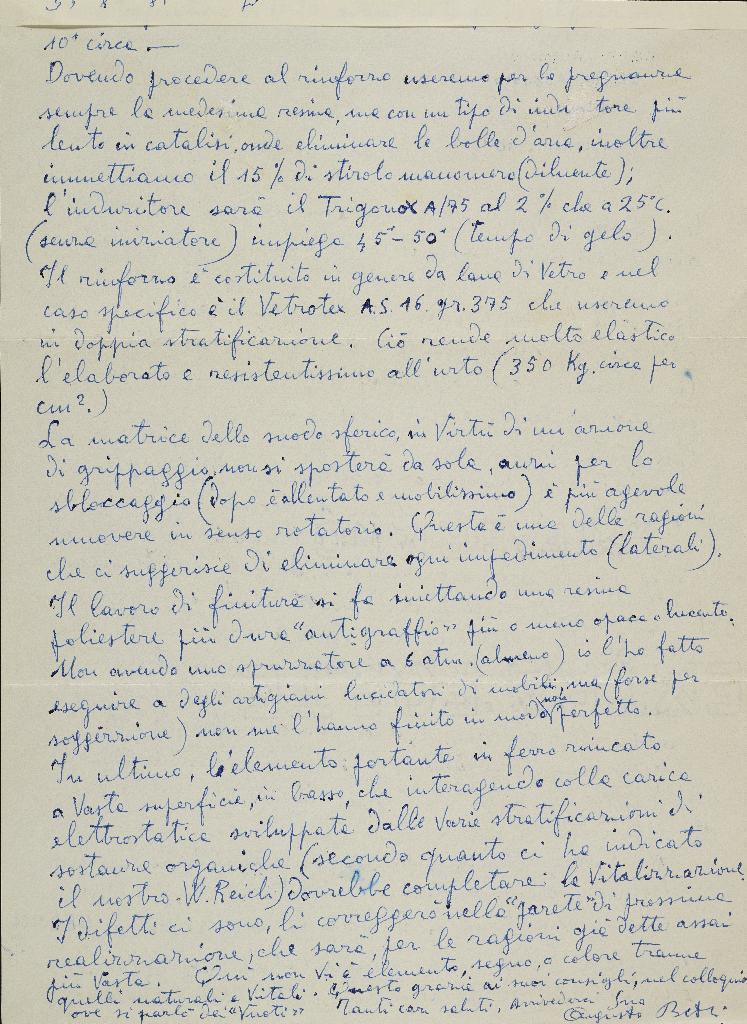 10' circa. —
Dovendo procedere al rinforzo useremo per la pregnanza
sempre la medesima resina, ma con un tipo di induritore più
lento in catalisi, onde eliminare le bolle d'aria, inoltre
immettiamo il 15% di stirolo manomero (diluente);
l'induritore sarà il Trigonox A/75 al 2% che a 25°C.
(senza iniziatore) impiega 45'-50' (tempo di gelo).
Il rinforzo è costituito in genere da lana di Vetro e nel
caso specifico è il Vetrotex A.S. 16. gr. 375 che useremo
in doppia stratificazione. Ciò rende molto elastico
l'elaborato e resistentissimo all'urto (350 Kg. circa per
cm².)
La matrice dello snodo sferico, in Virtù di un'azione
di grippaggio, non si sposterà da sola, anzi per lo
sbloccaggio (dopo è allentato e mobilissimo) è più agevole
muovere in senso rotatorio. Questa è una delle ragioni
che ci suggerisce di eliminare ogni impedimento (laterali).
Il lavoro di finitura si fa iniettando una resina
poliestere più dura "antigraffio" più o meno opaca o lucente.
Non avendo uno spruzzatore a 6 atm. (almeno) io l'ho fatto
eseguire a degli artigiani lucidatori di mobili, ma (forse per
soggezzione) non me l'hanno finito in modo non perfetto.
In ultimo, l'elemento portante in ferro zincato
a Vasta superficie, in basso, che interagendo colla carica
elettrostatica sviluppata dalle Varie stratificazioni di
sostanze organiche (secondo quanto ci ha indicato
il nostro W. Reich) dovrebbe completare la Vitalizzazione.
I difetti ci sono, li correggerò nella "parete" di prossima
realizzazione, che sarà, per le ragioni già dette assai
più Vasta. Qui non Vi è elemento, segno, o colore tranne
quelli naturali e Vitali. Questo grazie ai suoi consigli, nel colloquio
ove si parlò dei "Vuoti" Tanti cari saluti, Arrivederci Suo
Augusto